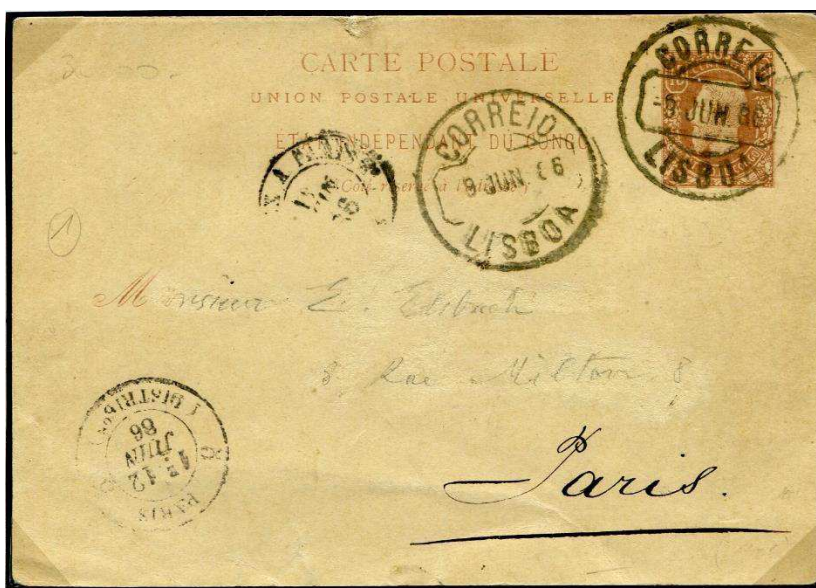 CARTE POSTALE
UNION POSTALE UNIVERSELLE
ETAT INDÉPENDANT DU CONGO
Côté réservé à l'adresse
CORREIO
9 JUN 86
LISBOA
CORREIO
9 JUN. 86
LISBOA
A PARIS
1
Monsieur E.
8 Rue Milton 8
Paris.
PARIS
12
JUIN
86
(DISTRIBON)